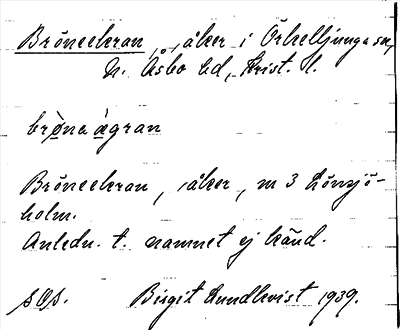 Bröneekran, åker i Örkelljunga sn,
N. Åsbo hd, Krist. l.
brǫ̀na ą̀gran
Bröneekran, åker, m 3 Lönsjö-
holm.
Anledn. t. namnet ej känd.
SOS. Birgit Lundkvist 1939.